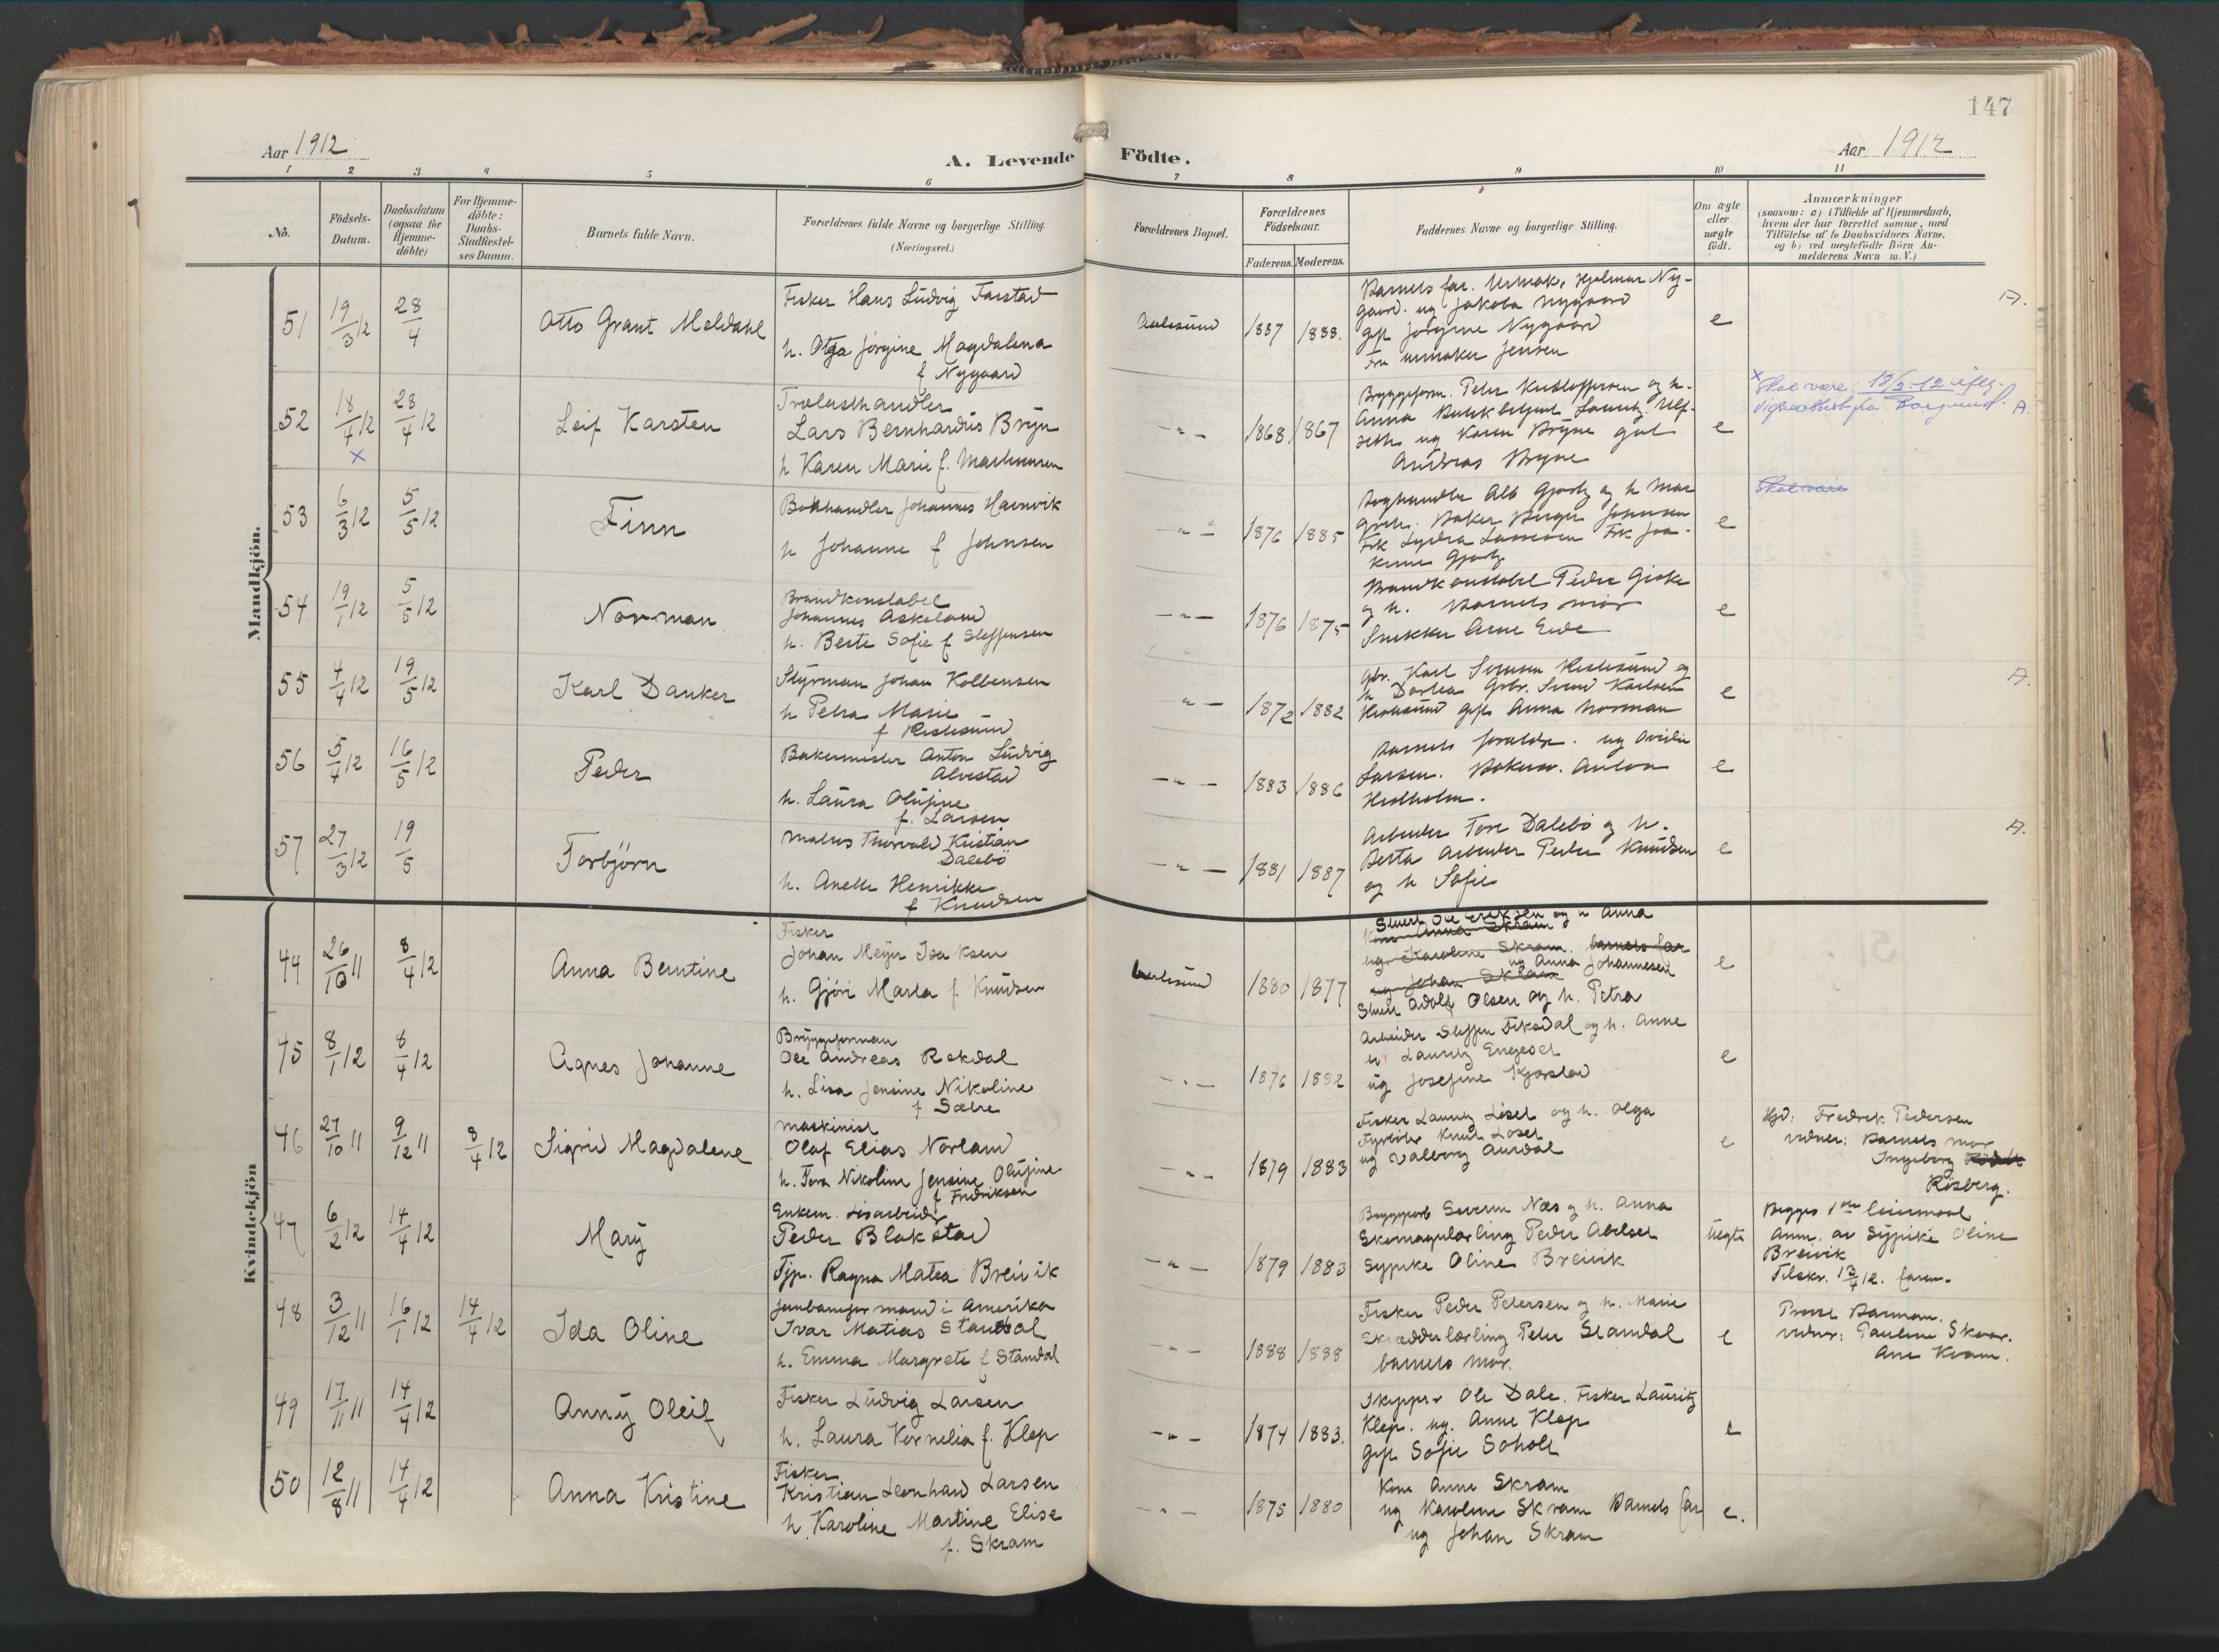 147
Aar 1912
A. Levende Födte.
Aar 1912
1 2 3 4 5 6 7 8 9 10 11
No.
Födsels-
Datum.
Daabsdatum
(ogsaa for
Hjemme-
döbte)
For Hjemme-
döbte:
Daabs-
Stadfæstel-
ses Datum.
Barnets fulde Navn.
Forældrenes fulde Navne og borgerlige Stilling.
(Næringsvei.)
Forældrenes Bopæl.
Forældrenes
Födselsaar.
Faderens. Moderens.
Faddernes Navne og borgerlige Stilling.
Om ægte
eller
uægte
födt.
Anmærkninger
(saasom: a) i Tilfælde af Hjemmedaab,
hvem der har forrettet samme, med
Tilföielse af to Daabsvidners Navne,
og b) ved uægtefödte Börn An-
melderens Navn m. V.)
Mandkjön.
51 19/3 12 28/4
Otto Grant Meldahl
Fisker Hans Ludvig Farstad
h. Olga Jörgine Magdalena
f Nygaard
Aalesund 1887 1888.
Barnets far. Urmak. Hjalmar Ny-
gaard. ug Jakoba Nygaard
gift Jörgine Nygaard
Fru urmaker Jensen
e
A.
52 18/4 12 28/4 12
x
Leif Karsten
Trælasthandler
Lars Bernhardus Bryn
h Karen Marie f. Martinusen
-"- 1868 1867
Bryggeform. Peter Kristoffersen og h.
Anna
ug Karen Bryne gut
Andreas Bryne
e
x Skal være 18/3-12 iflg.
fra Borgund. A.
53 6/3 12 5/5 12
Finn
Bokhandler Johannes Havnvik
h Johanne f Johnsen
-"- 1876 1885
Baker Birger Johnsen
e
Skal være
54 19/1 12 5/5 12
Norman
Brandkonstabel
Johannes Askeland
h. Berte Sofie f Steffensen
-"- 1876 1875
Brandkonstabel Peder Giske
og h. Barnets mor
Snekker Arne Eide
e
55 4/4 12 19/5 12
Karl Danker
Styrman Johan Kolbensen
h Petra Marie
f Ristesund
-"- 1872 1882
gbr. Karl Ristesund og
h Dortea Gbr. Karlsen
Ristesund gift Anna Norman
e
A.
56 5/4 12 16/5 12
Peder
Bakermester Anton Ludvig
Alvestad
h. Laura Olufine
f. Larsen
-"- 1883 1886
Barnets foreldre. ug
Larsen. Bakersv. Anton
Hedholm.
e
57 27/3 12 19/5
Torbjörn
Malers Thorvald Kristian
Dalebö
h. Anette Henrikke
f Knudsen
-"- 1881 1887
Arbeider Tore Dalebö og h.
Berta Arbeider Peder Knudsen
og h Sofie
e
A.
Kvindekjön
44 26/10 11 8/4 12
Anna Berntine
Fisker
Johan Meyer Isaksen
h. Gjöri Marta f Knudsen
Aalesund 1880 1877
Stuert Ole Eriksen og h Anna
Kone Anna Skram
ug Karoline Skram. barnets far
ug Anna Johannesen
ug Johan Skram
Stuert Adolf Olsen og h. Petra
e
45 8/1 12 8/4 12
Agnes Johanne
Bryggeforman
Ole Andreas Rekdal
h. Lisa Jensine Nikoline
f Sætre
-"- 1876 1882
Arbeider Steffen Fiksdal og h. Anne
Lauritz Engeset
ug Josefine Kjörstad
e
46 27/10 11 9/12 11 8/4 12
Sigrid Magdalene
Maskinist
Olaf Elias Norland
h. Tora Nikoline Jensine Olufine
f Fredriksen
-"- 1879 1883
Fisker Lauritz Löset og h. Olga
Fyrböter Knut Löset
ug Valborg Aurdal
e
Hjd: Fredrik Pedersen
vidner: Barnets mor
Ingeborg
Rösberg.
47 6/2 12 14/4 12
Mary
Enkem. Løsarbeider
Peder Blakstad
Tjp. Ragna Matea Breivik
-"- 1879 1883
Bryggearb Severin Næs og h. Anna
Skomagerlærling Peder Abelset
Sypike Oline Breivik
Uegte
Begges 1ste leiermaal
Anm. av Sypike Oline
Breivik
Tilskr. 13/4 12. faren.
48 3/12 11 16/1 12 14/4 12
Ida Oline
Jernbaneformand i Amerika
Ivar Matias Standal
h. Emma Margrete f Standal
-"- 1888 1888
Fisker Peder Petersen og h. Marie
Skrædderlærling Peter Standal
barnets mor.
e
Prost Barman.
vidner: Pauline Skaar.
Ane Kvam.
49 17/11 11 14/4 12
Anny Oleif
Fisker Ludvig Larsen
h. Laura Kornelia f. Klep
-"- 1874 1883.
Skipper Ole Dale. Fisker Lauritz
Klep. ug. Anne Klep
gift Sofie Soholt
e
50 12/8 11 14/4 12
Anna Kristine
Fisker
Kristian Leonhard Larsen
h. Karoline Martine Elise
f. Skram
-"- 1875 1880
Kone Anne Skram
ug Karoline Skram Barnets far
ug Johan Skram
e.